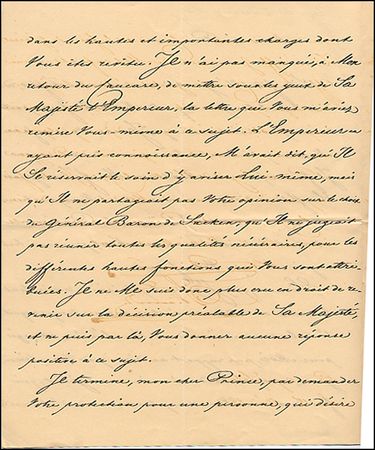 dans les hautes et importantes charges dont
Vous êtes revêtu. Je n'ai pas manqué, à Mon
retour du Caucase, de mettre sous les yeux de Sa
Majesté l'Empereur, la lettre que Vous m'aviez
remise Vous-même à ce sujet. L'Empereur en
ayant pris connaissance, M'avait dit, qu'Il
Se réservait le soin d'y aviser Lui-même, mais
qu'Il ne partageait pas Votre opinion sur le choix
du Général Baron de Sacken, qu'Il ne jugeait
pas réunir toutes les qualités nécéssaires, pour les
différentes hautes fonctions que Vous sont attri-
buées. Je ne Me suis donc plus cru en droit de re-
venir sur la décision préalable de Sa Majesté,
et ne puis par là, Vous donner aucune réponse
positive à ce sujet.
Je termine, mon cher Prince, par demander
Votre protection pour une personne, qui désire